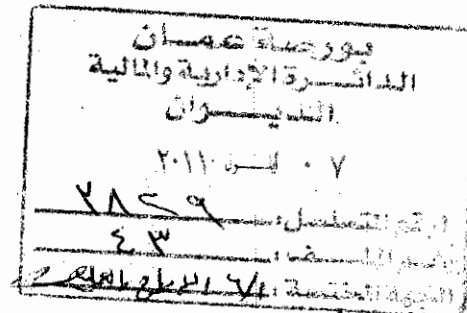 بورصة عمان
الدائرة الإدارية والمالية
الديوان
٠٧ ٢٠١١
الرقم المتسلسل: ٣٨٢٩
رقم الملف: ٤٣
الجهة المختصة: